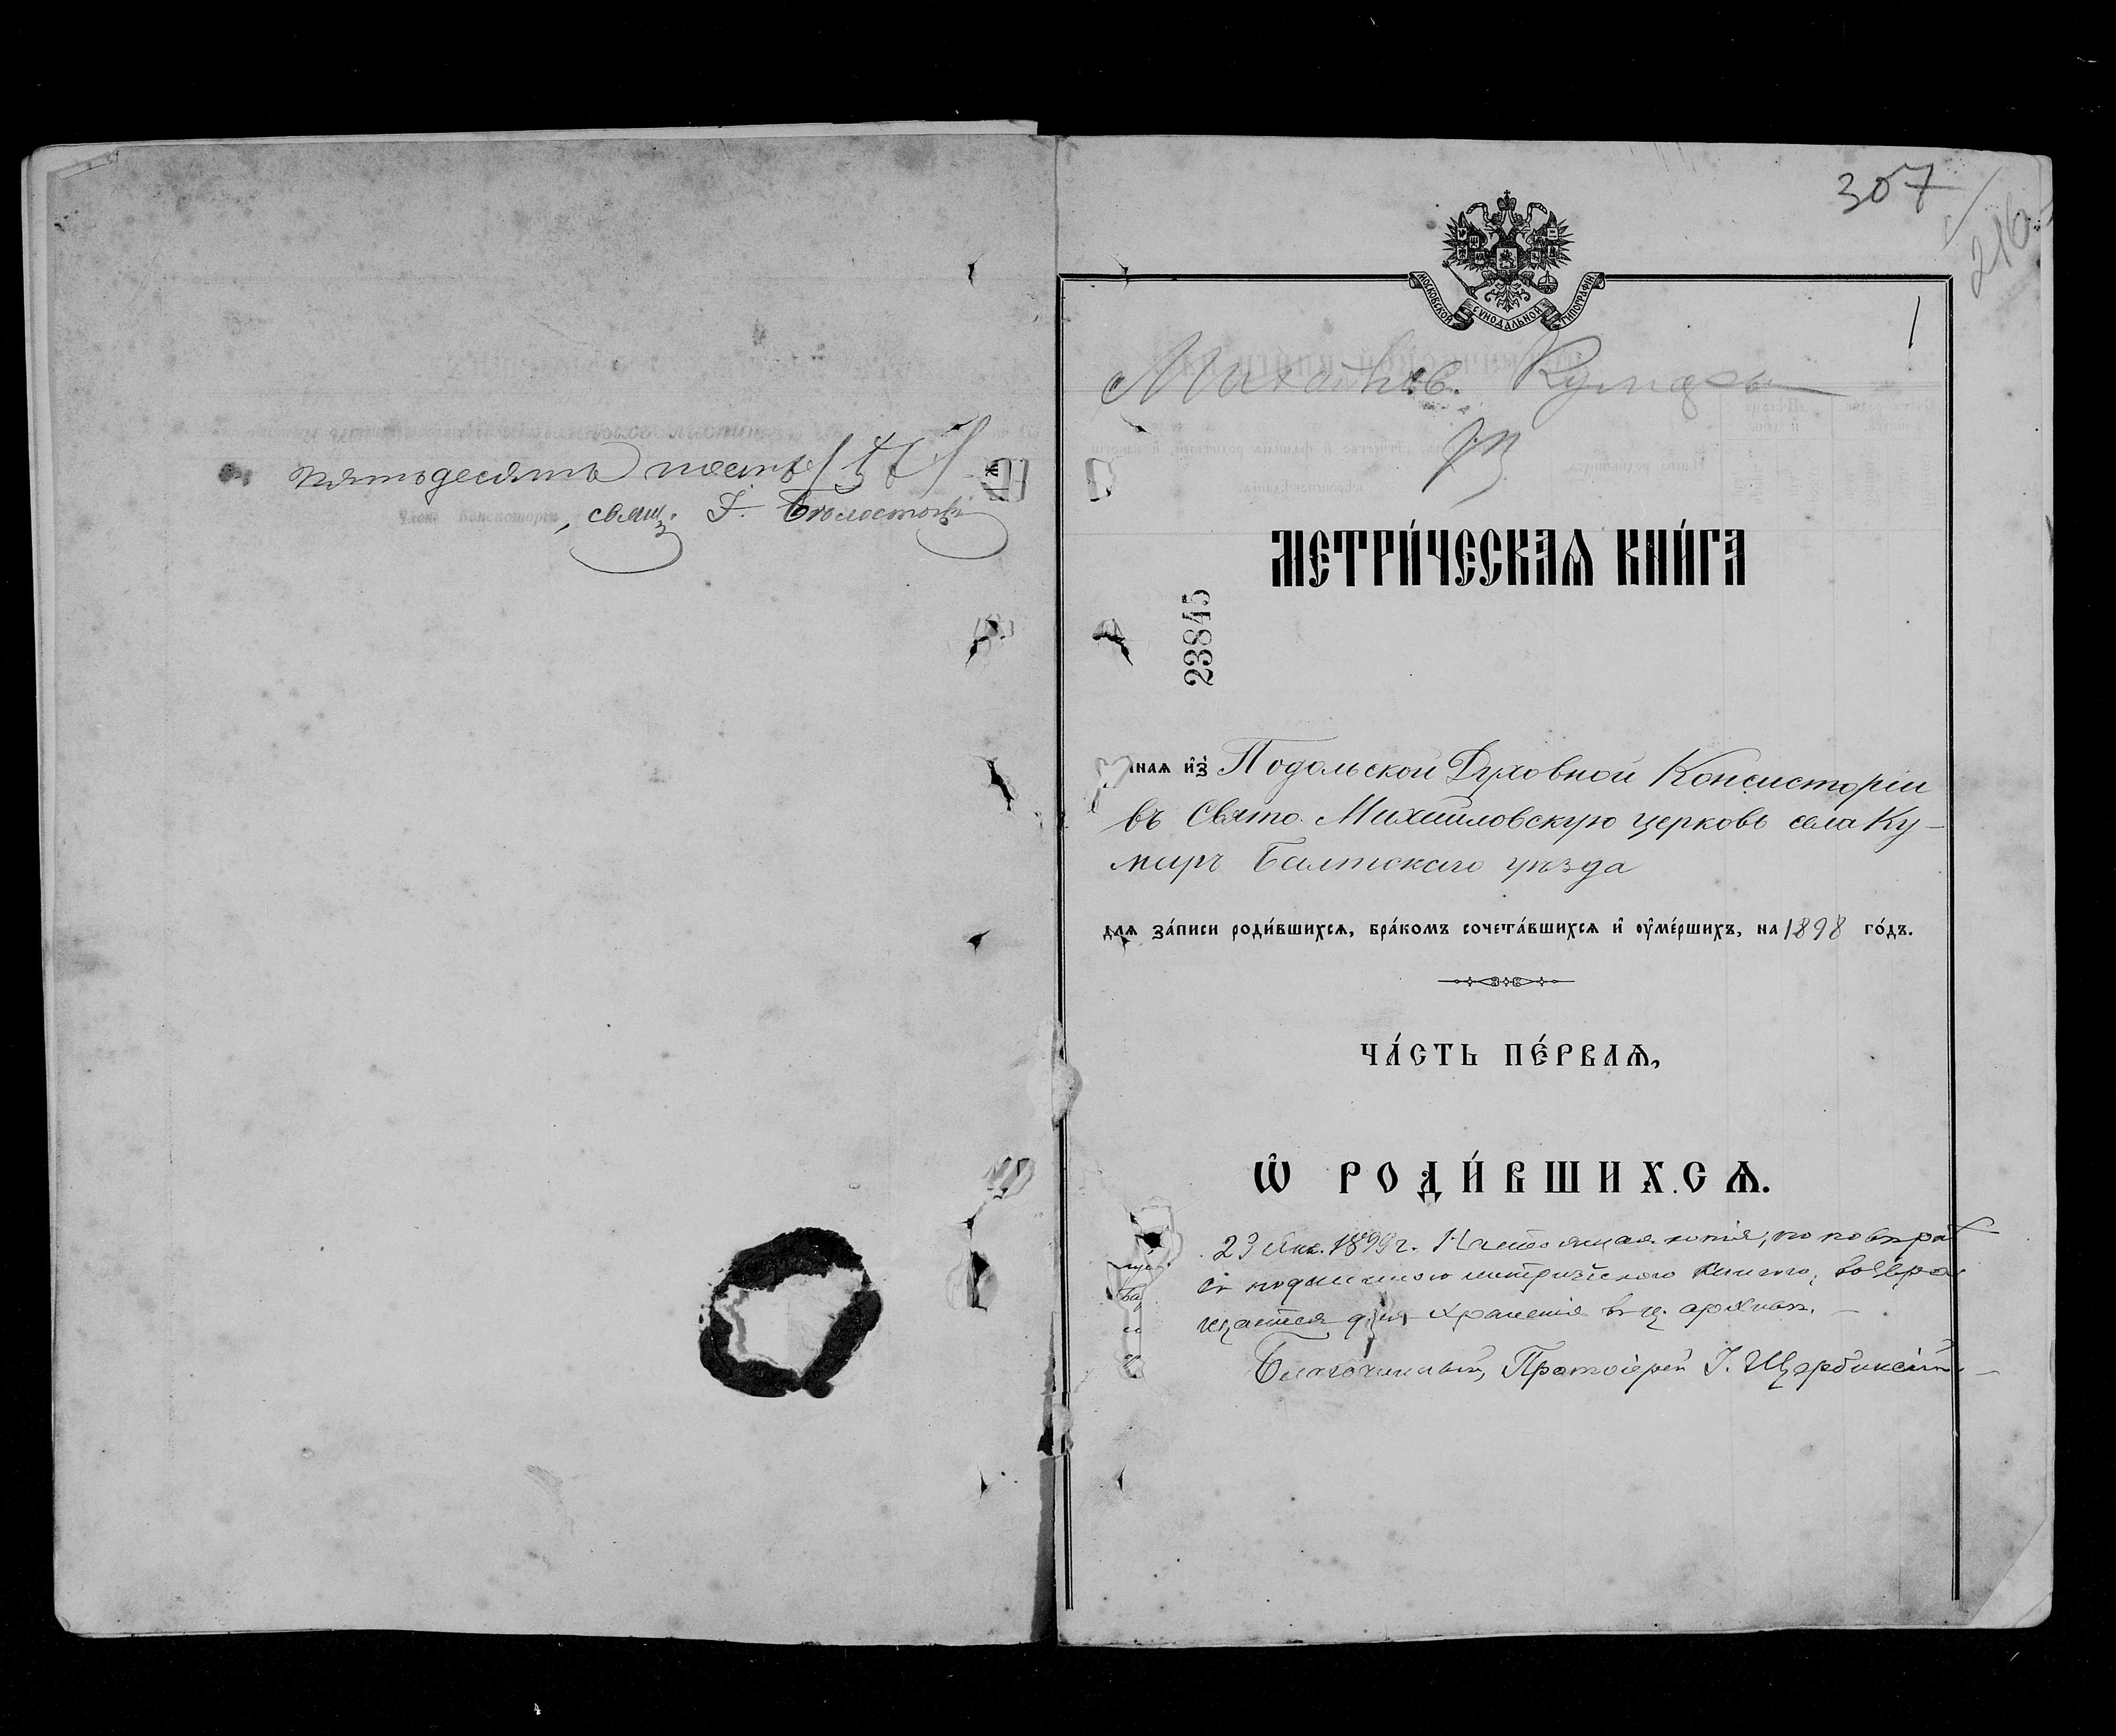 пятьдесятъ шесть /56/
свящ. І. Бѣлостоцкі
307
216
1
МОСКОВСКОЙ СѴНОДАЛЬНОЙ ТИПОГРАФІИ
Михайлов. Кумары
МЕТРИ́ЧЕСКАѦ КНИ́ГА
23845
ннаѧ и҆з̾ Подольской Духовной Консисторіи
въ Свято-Михайловскую церковь села Ку-
маръ Балтскаго уѣзда
длѧ за́писи роди́вшихсѧ, бра́комъ сочета́вшихсѧ и҆ ѹ҆ме́ршихъ, на 1898 го́дъ.
ЧА́СТЬ ПЕ́РВАѦ,
Ѡ҆ РОДИ́ВШИХСѦ.
23 Янв. 1899 г. Настоящая копія, по повѣркѣ
съ подлинною метрическою книгою, возвра-
щается для хранения въ ц. архивъ.
Благочинный, Протоіерей І. Щербинскій